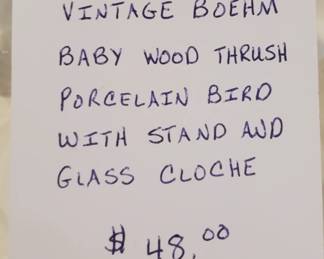 VINTAGE BOEHM
BABY WOOD THRUSH
PORCELAIN BIRD
WITH STAND AND
GLASS CLOCHE
$ 48.00